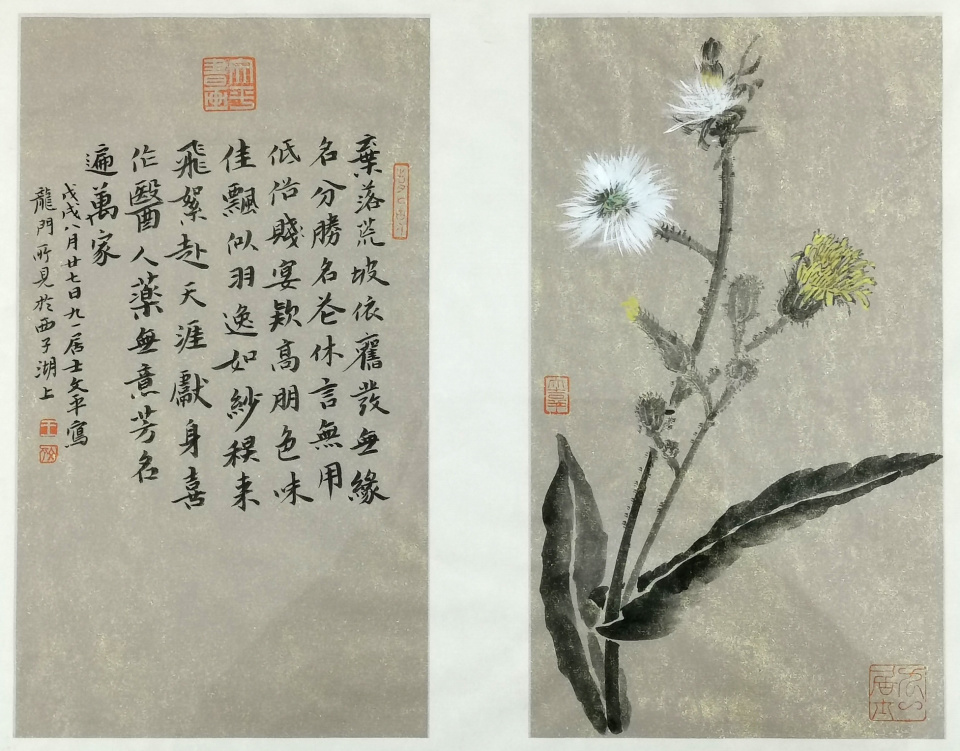 棄落荒坡依舊發無緣
名分勝名花休言無用
低俗賤宴款高朋色味
佳飄似羽逸如紗来
飛絮赴天涯獻身喜
作醫人藥無意芳名
遍萬家
戊戌八月廿七日九一居士文平寫
龍門所見於西子湖上
九一居士